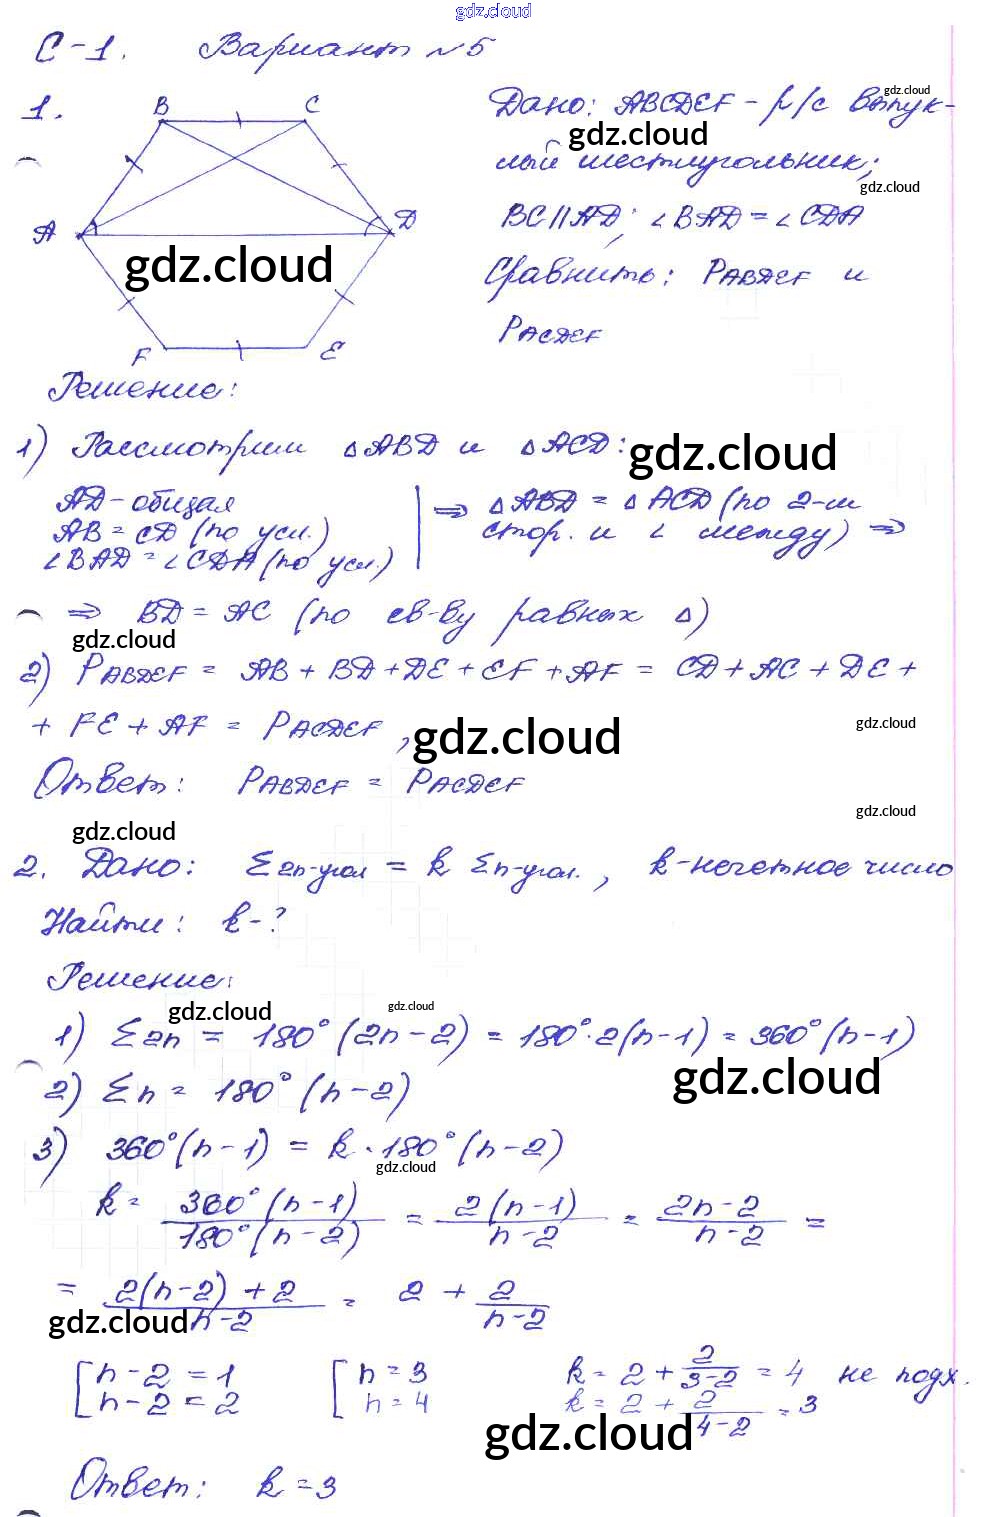 gdz.cloud
С-1. Вариант №5
1. B C Дано: ABCDEF – р/с выпук-
gdz.cloud
gdz.cloud
лый шестиугольник;
gdz.cloud
A D BC || AD; ∠BAD = ∠CDA
gdz.cloud
Сравнить: PABDEF и
F E PACDEF
Решение:
1) Рассмотрим ΔABD и ΔACD:
gdz.cloud
AD – общая ⇒ ΔABD = ΔACD (по 2-м
AB = CD (по усл.) стор. и ∠ между) ⇒
∠BAD = ∠CDA (по усл.)
⇒ BD = AC (по св-ву равных Δ)
gdz.cloud
2) PABDEF = AB + BD + DE + EF + AF = CD + AC + DE +
+ FE + AF = PACDEF,
gdz.cloud
gdz.cloud
Ответ: PABDEF = PACDEF
gdz.cloud
gdz.cloud
2. Дано: Σ2n-угол = k Σn-угол., k – нечетное число
Найти: k - ?
Решение:
gdz.cloud
gdz.cloud
1) Σ2n = 180°(2n – 2) = 180°·2(n-1) = 360°(n-1)
gdz.cloud
2) Σn = 180°(n-2)
3) 360°(n-1) = k·180°(n-2)
gdz.cloud
k = 360°(n-1)/180°(n-2) = 2(n-1)/n-2 = 2n-2/n-2 =
= 2(n-2)+2/n-2 = 2 + 2/n-2
gdz.cloud
[n-2 = 1 [n = 3 k = 2 + 2/3-2 = 4 не подх.
n-2 = 2 n = 4 k = 2 + 2/4-2 = 3
gdz.cloud
Ответ: k = 3